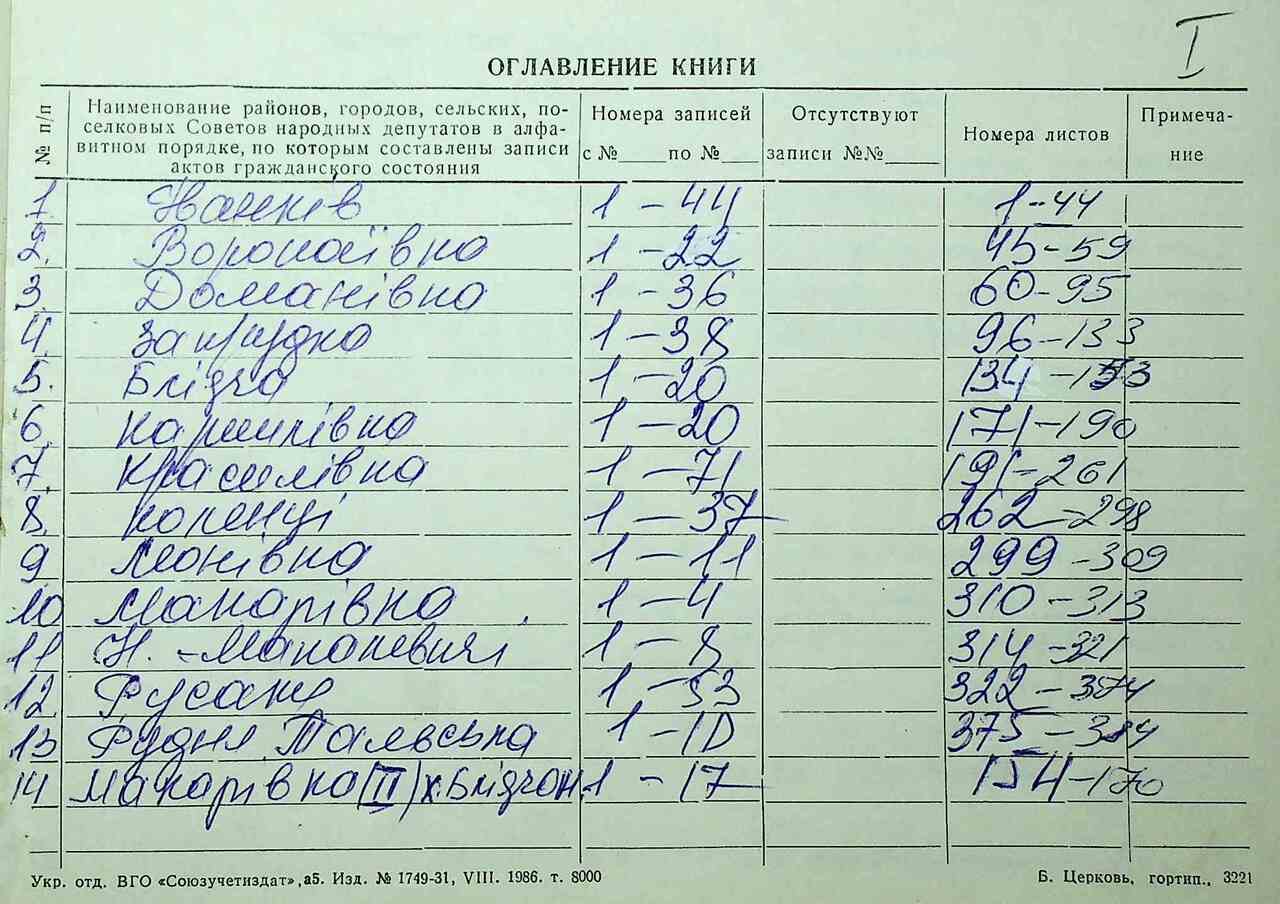 I
ОГЛАВЛЕНИЕ КНИГИ
№ п/п
Наименование районов, городов, сельских, по-
селковых Советов народных депутатов в алфа-
витном порядке, по которым составлены записи
актов гражданского состояния
Номера записей
с №____по №___
Отсутствуют
записи №№_____
Номера листов
Примеча-
ние
1. Іванків 1 – 44 1–44
2. Воропаївка 1 – 22 45–59
3. Доманівка 1 – 36 60–95
4. Запрудка 1 – 38 96–133
5. Блідча 1 – 20 134–153
6. 1 – 20 171–190
7. Красилівка 1 – 71 191–261
8. Коленці 1 – 37 262–298
9 1 – 11 299–309
10 Макарівка 1 – 4 310–313
11 Н. – Макалевичі 1 – 8 314–321
12. Русаки 1 – 53 322–374
13 Рудня Тальська 1 – 10 375–384
14 Макарівка (II) х. Блідчан. 1 – 17 154–170
Укр. отд. ВГО «Союзучетиздат», а5. Изд. № 1749-31, VIII. 1986. т. 8000
Б. Церковь, гортип., 3221